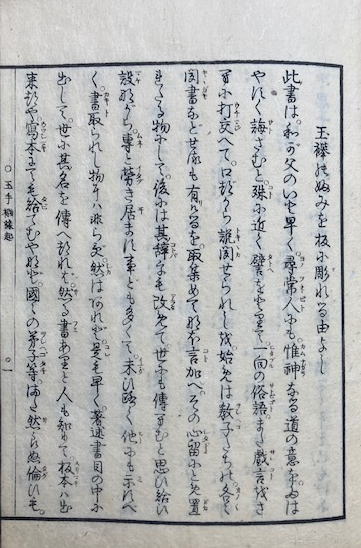 玉襷のふみを板に彫れる由よし
此書は。和が父のいと早く。尋常人にも。惟神なる道の意をあは
やすく誨さむと。殊に近く譬をとりて。一向の俗語また戯言越さ
へに打交へて。口づから説聞せられしを始めは教子たちの各々
聞書などせるも有けるを。取集めて猶も言加へ。そらの心留にと艸置
きたる物にして。後には其辞をも改めて世にも傳へむと思ひ給ひ
設ながら。專と勞き居まれ事ども多くて。未ひろく他にも示れへ
く。書取られし物にはあらぬを。然はあれど是も早く。著述書目の中に
出して。世に其名を傳へられど。然る書ありと人も知めて。板本は出
来ずや寫本にても給てむやなど。國々の弟子等はた然らぬ倫ひも。
○玉手襁縁起
○一